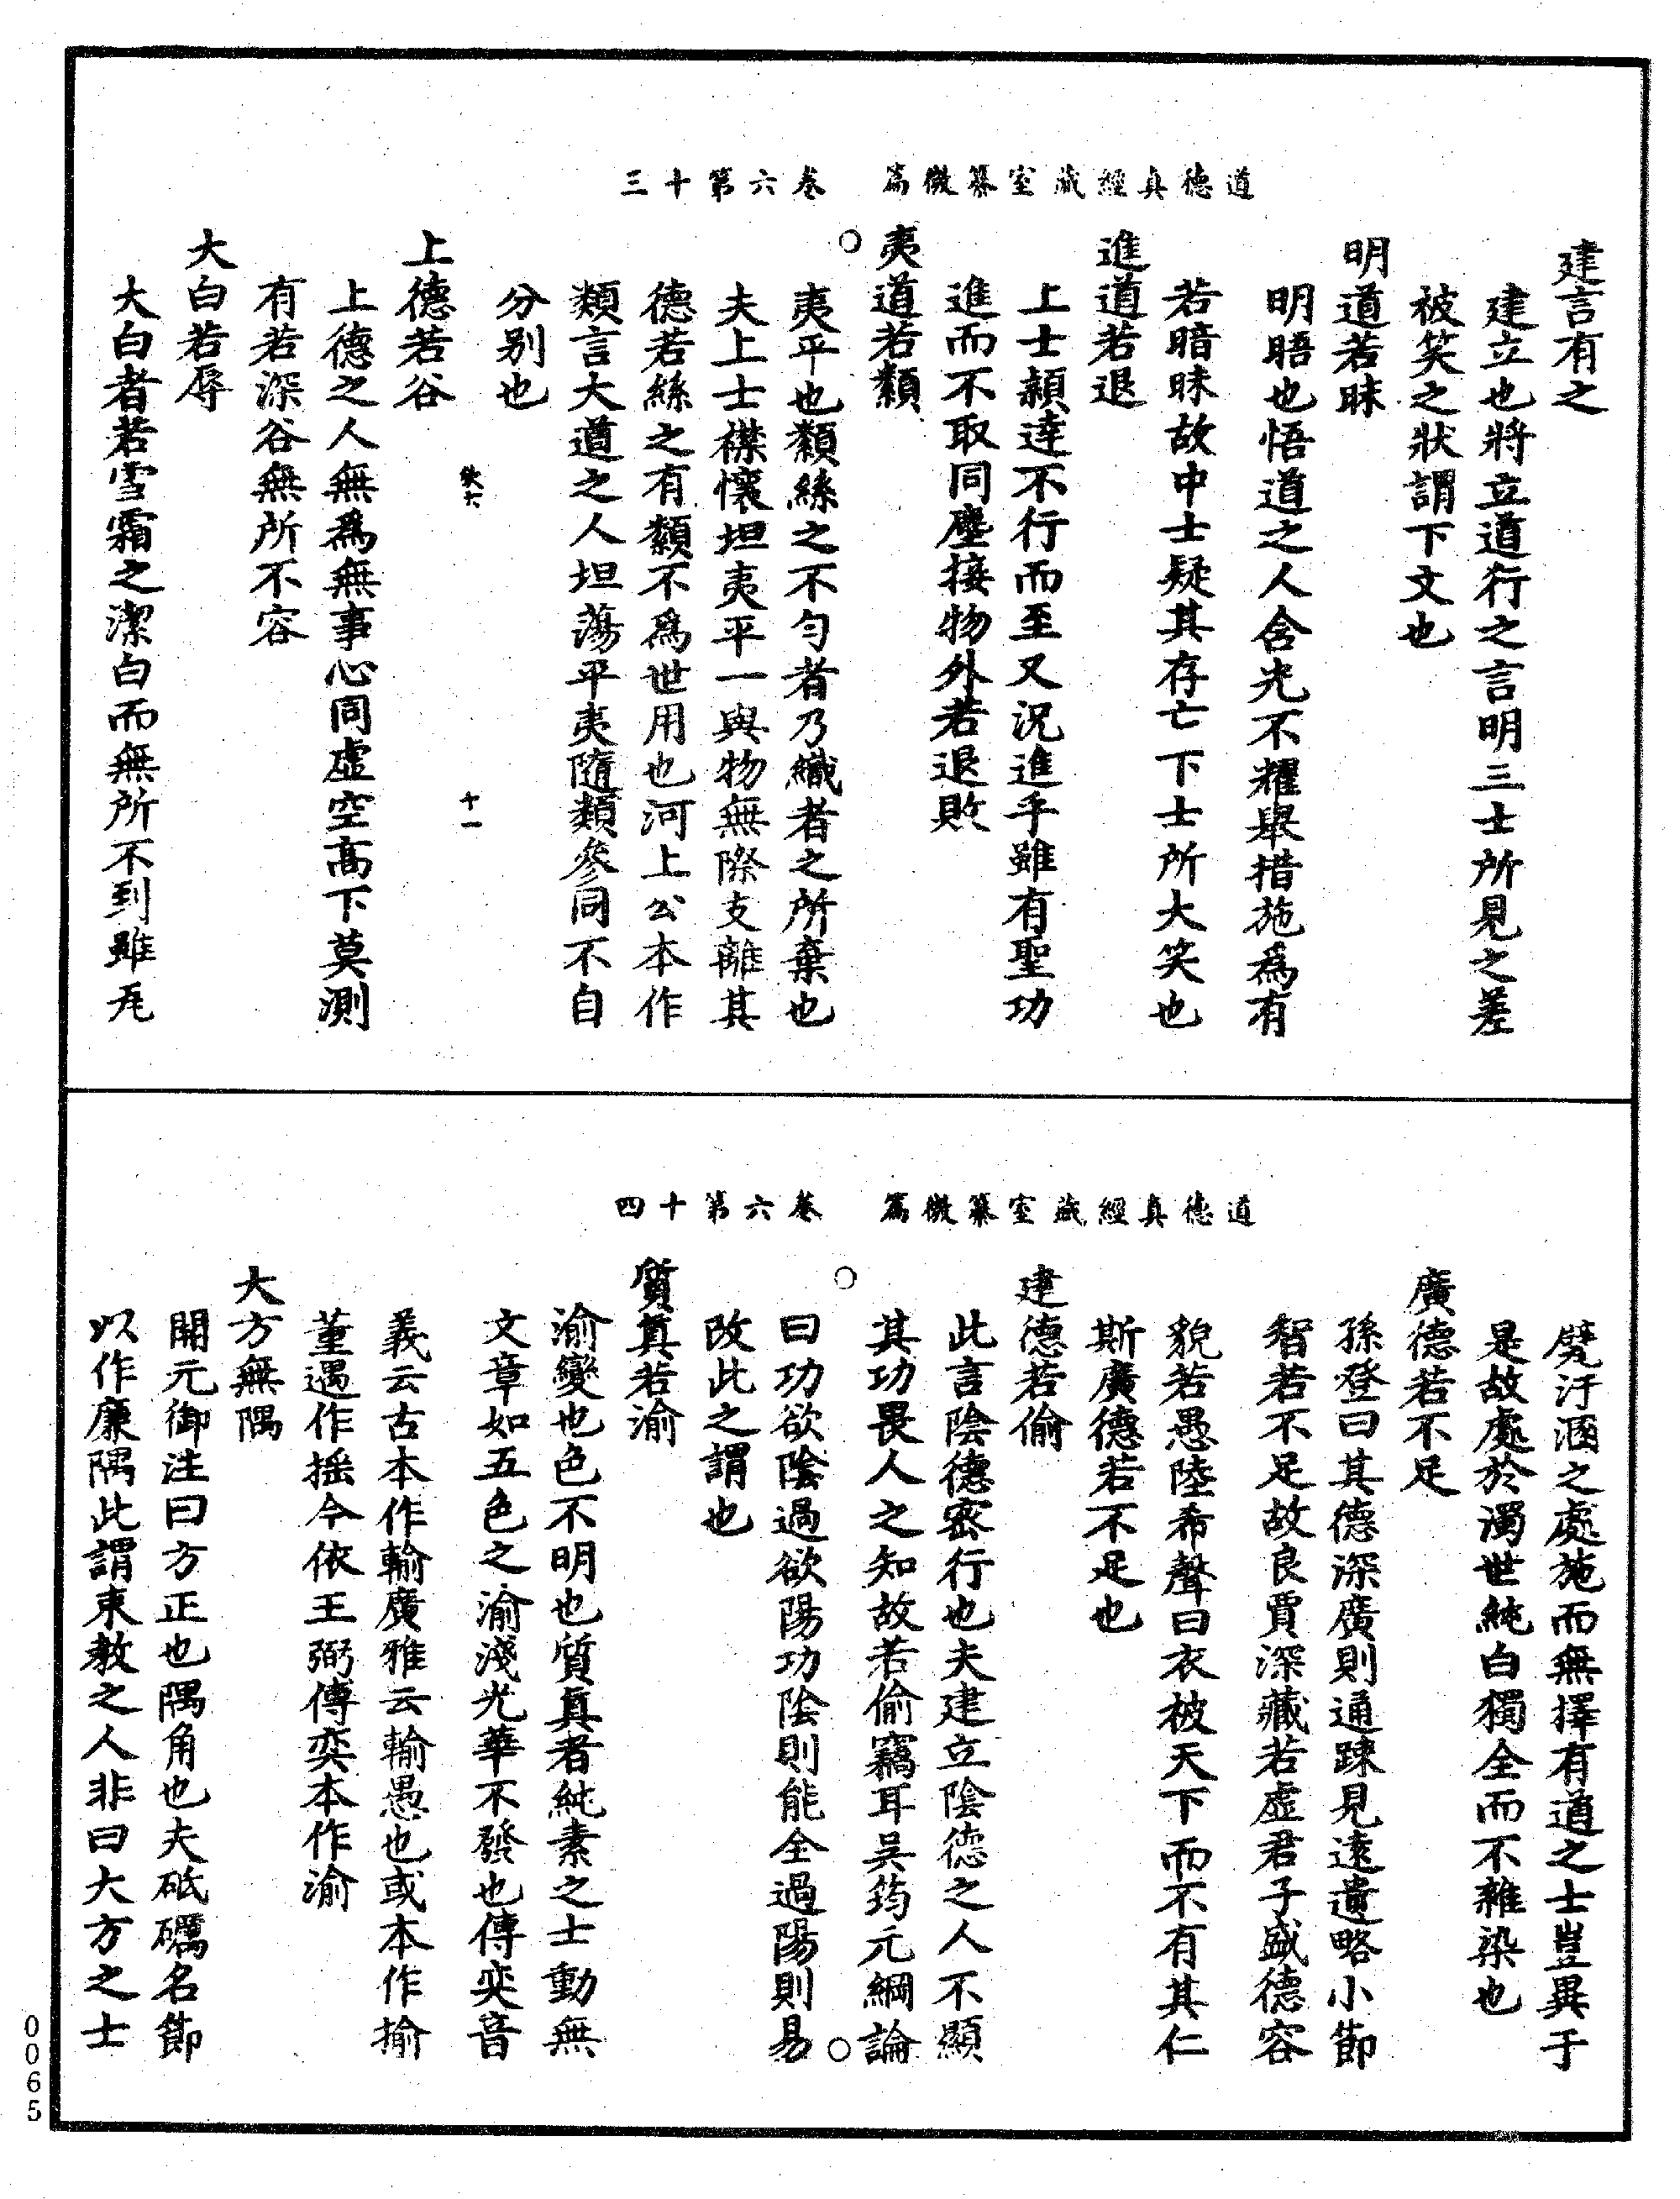 道德真經藏室纂微篇　卷六第十三
建言有之
建立也將立道行之言明三士所見之差
被笑之狀謂下文也
明道若昧
明晤也悟道之人含光不耀舉措施爲有
若暗昧故中士疑其存亡下士所大笑也
進道若退
上士頴達不行而至又況進乎雖有聖功
進而不取同塵接物外若退敗
夷道若纇
夷平也纇絲之不勻者乃織者之所棄也
夫上士襟懷坦夷平一與物無際支離其
德若絲之有纇不爲世用也河上公本作
類言大道之人坦蕩平夷隨類參同不自
分别也
十一
上德若谷
上德之人無爲無事心同虛空高下莫測
有若深谷無所不容
大白若辱
大白者若雪霜之潔白而無所不到雖瓦
道德真經藏室纂微篇　卷六第十四
甓汙溷之處施而無擇有道之士豈異于
是故處於濁世純白獨全而不雜染也
廣德若不足
孫登曰其德深廣則通踈見遠遺略小節
智若不足故良賈深藏若虛君子盛德容
貌若愚陸希聲曰衣被天下而不有其仁
斯廣德若不足也
建德若偷
此言陰德密行也夫建立陰德之人不顯
其功畏人之知故若偷竊耳吴筠元綱論
曰功欲陰過欲陽功陰則能全過陽則易
改此之謂也
質真若渝
渝變也色不明也質真者純素之士動無
文章如五色之渝淺光華不發也傅奕音
義云古本作輸廣雅云輸愚也或本作揄
董遇作摇今依王弼傅奕本作渝
大方無隅
開元御注曰方正也隅角也夫砥礪名節
以作廉隅此謂束教之人非曰大方之士
0065